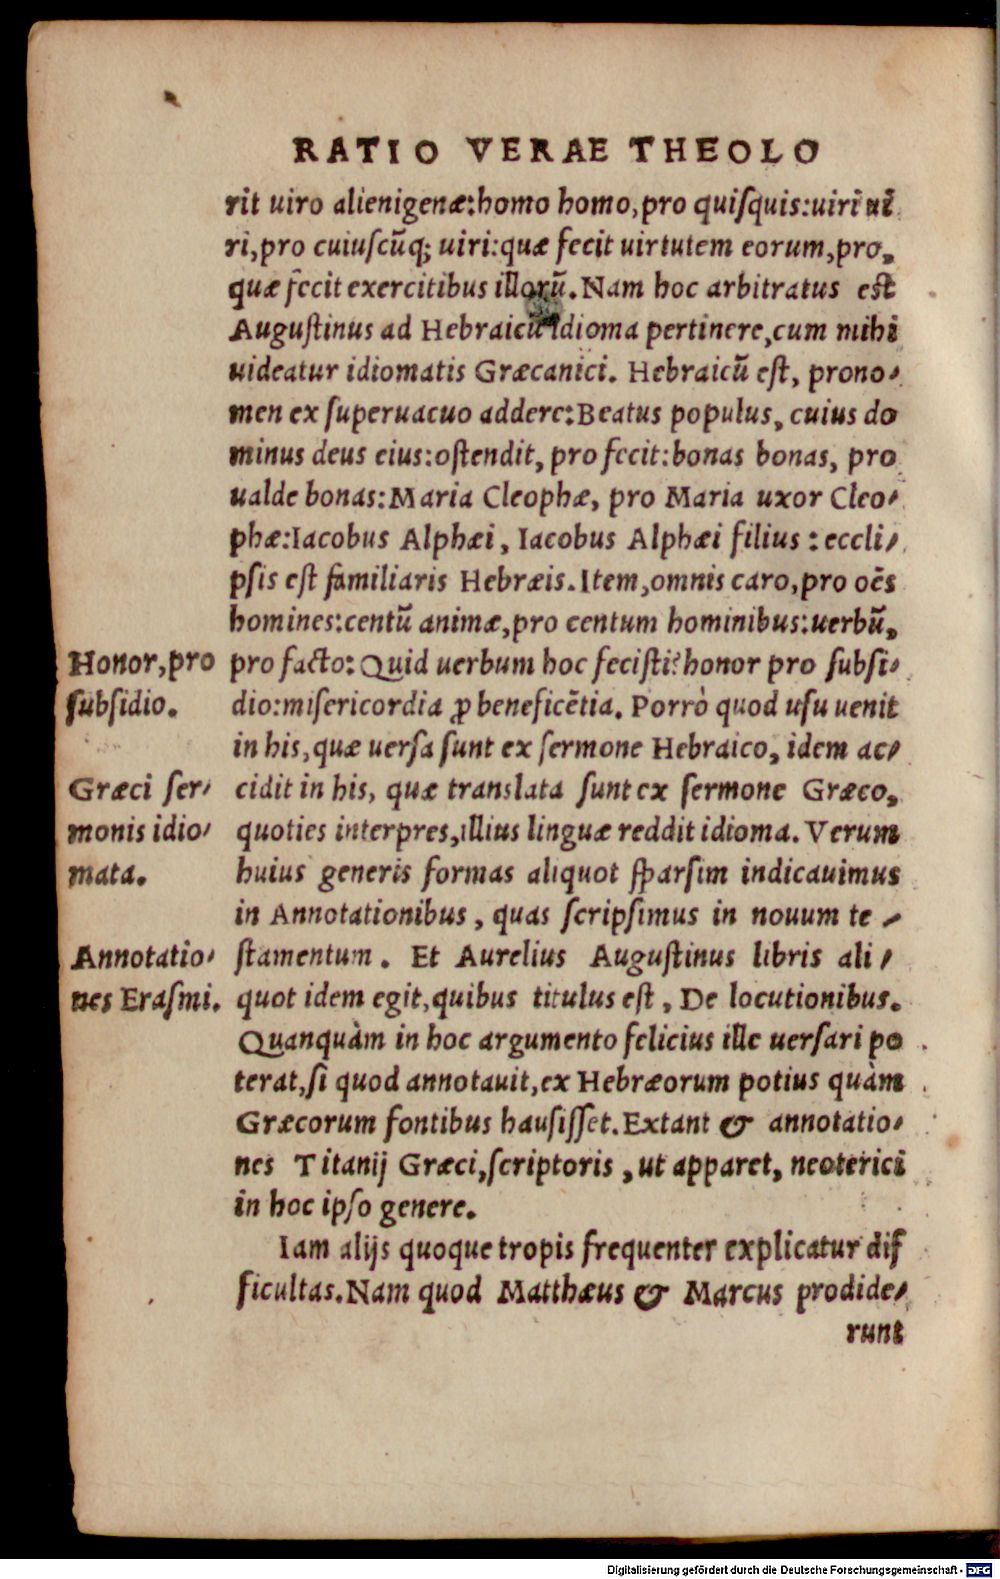 RATIO VERAE THEOLO
rit uiro alienigenæ:homo homo,pro quiſquis:uiri ui
ri,pro cuiuſcũq; uiri:quæ fecit uirtutem eorum,pro,
quæ fecit exercitibus illorũ.Nam hoc arbitratus est
Auguſtinus ad Hebraicũ idioma pertinere,cum mihi
uideatur idiomatis Græcanici. Hebraicũ eſt, prono-
men ex ſuperuacuo addere:Beatus populus, cuius do
minus deus eius:oſtendit, pro fecit:bonas bonas, pro
ualde bonas:Maria Cleophæ, pro Maria uxor Cleo-
phæ:Iacobus Alphæi, Iacobus Alphæi filius : eccli-
pſis eſt familiaris Hebræis.Item,omnis caro,pro oẽs
homines:centũ animæ,pro centum hominibus:uerbũ,
Honor,pro
ſubſidio.
pro facto: Quid uerbum hoc feciſti?honor pro ſubſi-
dio:miſericordia ꝓ beneficẽtia. Porrò quod uſu uenit
in his,quæ uerſa ſunt ex ſermone Hebraico, idem ac-
Græci ſer-
monis idio-
mata.
cidit in his, quæ translata ſunt ex ſermone Græco,
quoties interpres,illius linguæ reddit idioma. Verum
huius generis formas aliquot ſparſim indicauimus
in Annotationibus, quas ſcripſimus in nouum te -
Annotatio-
nes Eraſmi.
ſtamentum. Et Aurelius Auguſtinus libris ali-
quot idem egit,quibus titulus eſt, De locutionibus.
Quanquàm in hoc argumento felicius ille uerſari po
terat,ſi quod annotauit,ex Hebræorum potius quàm
Græcorum fontibus hauſiſſet.Extant & annotatio-
nes Titanij Græci,ſcriptoris, ut apparet, neoterici
in hoc ipſo genere.
Iam alijs quoque tropis frequenter explicatur dif
ficultas.Nam quod Matthæus & Marcus prodide-
runt
Digitalisierung gefördert durch die Deutsche Forschungsgemeinschaft - DFG